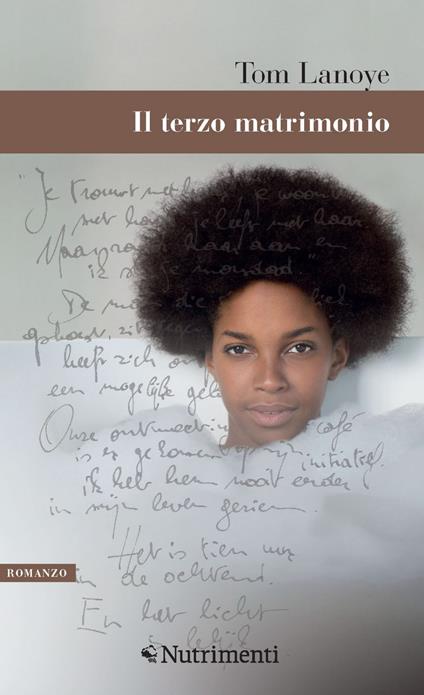 Tom Lanoye
Il terzo matrimonio
"Je trouwt met haar, je woont
met haar, je leeft met haar.
Maar raak haar aan en
ik sla je morsdood."
De man die
heeft zich
een mogelijke
Onze ontmoeting café
is er gekomen op zijn initiatief.
ik heb hem nooit eerder
in mijn leven gezien.
Het is tien uur
in de ochtend.
En het licht
is lelijk
ROMANZO
Nutrimenti